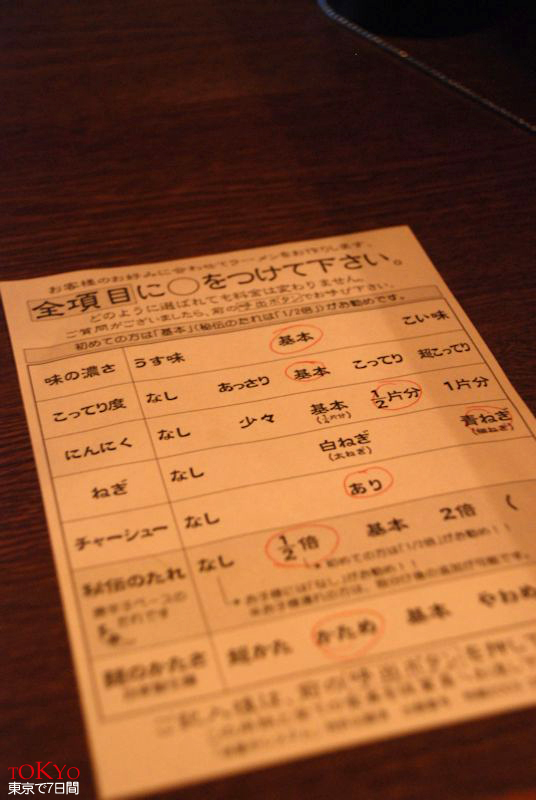 お客様のお好みに合わせてラーメンをお作りします。
全項目に〇をつけて下さい。
どのように選ばれても料金は変わりません。
ご質問がございましたら、前の呼出ボタンでお呼び下さい。
初めての方は「基本」(秘伝のたれは「1/2倍」)がお勧めです。
味の濃さ うす味 基本 こい味
こってり度 なし あっさり 基本 こってり 超こってり
にんにく なし 少々 基本 1/2片分 1片分
ねぎ なし 白ねぎ (太ねぎ) 青ねぎ (細ねぎ)
チャーシュー なし あり
秘伝のたれ なし 1/2倍 基本 2倍 (
唐辛子ベースの
たれです
*初めての方は「1/2倍」がお勧め!
*お子様には「なし」がお勧め!
麺のかたさ 超かた かため 基本 やわめ
ご記入後は、前の呼出ボタンを押して
TOKYO
東京で7日間